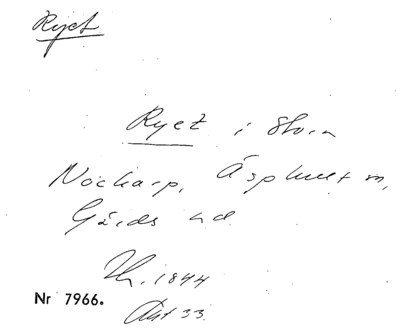 Ryet
Ryet i Stora
Nöckarp, Äsphult sn,
Gärds hd
1844
Nr 7966.
Akt 33.